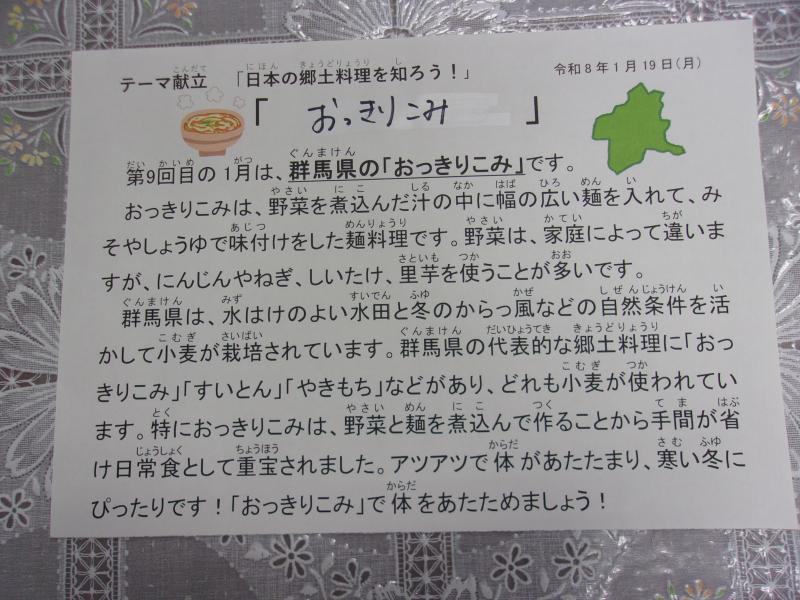 テーマ献立 「日本の郷土料理を知ろう！」 令和8年1月19日(月)
「 おっきりこみ 」
第9回目の1月は、群馬県の「おっきりこみ」です。
おっきりこみは、野菜を煮込んだ汁の中に幅の広い麺を入れて、み
そやしょうゆで味付けをした麺料理です。野菜は、家庭によって違いま
すが、にんじんやねぎ、しいたけ、里芋を使うことが多いです。
群馬県は、水はけのよい水田と冬のからっ風などの自然条件を活
かして小麦が栽培されています。群馬県の代表的な郷土料理に「おっ
きりこみ」「すいとん」「やきもち」などがあり、どれも小麦が使われてい
ます。特におっきりこみは、野菜と麺を煮込んで作ることから手間が省
け日常食として重宝されました。アツアツで体があたたまり、寒い冬に
ぴったりです！「おっきりこみ」で体をあたためましょう！